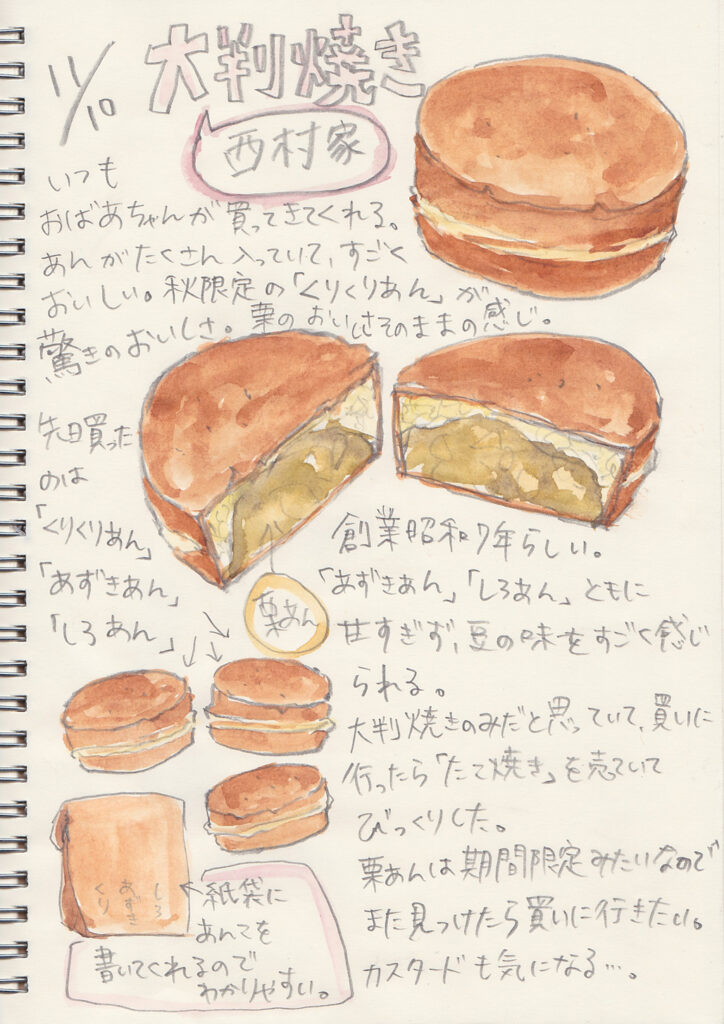 11/10
大判焼き
西村家
いつも
おばあちゃんが買ってきてくれる。
あんがたくさん入っていて、すごく
おいしい。秋限定の「くりくりあん」が
驚きのおいしさ。栗のおいしさそのままの感じ。
先日買った
のは
「くりくりあん」
「あずきあん」
「しろあん」
栗あん
創業昭和7年らしい。
「あずきあん」「しろあん」ともに
甘すぎず、豆の味をすごく感じ
られる。
大判焼きのみだと思っていて、買いに
行ったら「たて焼き」を売っていて
びっくりした。
栗あんは期間限定みたいなので
また見つけたら買いに行きたい。
カスタードも気になる…。
しろ
あずき
くり
紙袋に
あんこを
書いてくれるので
わかりやすい。